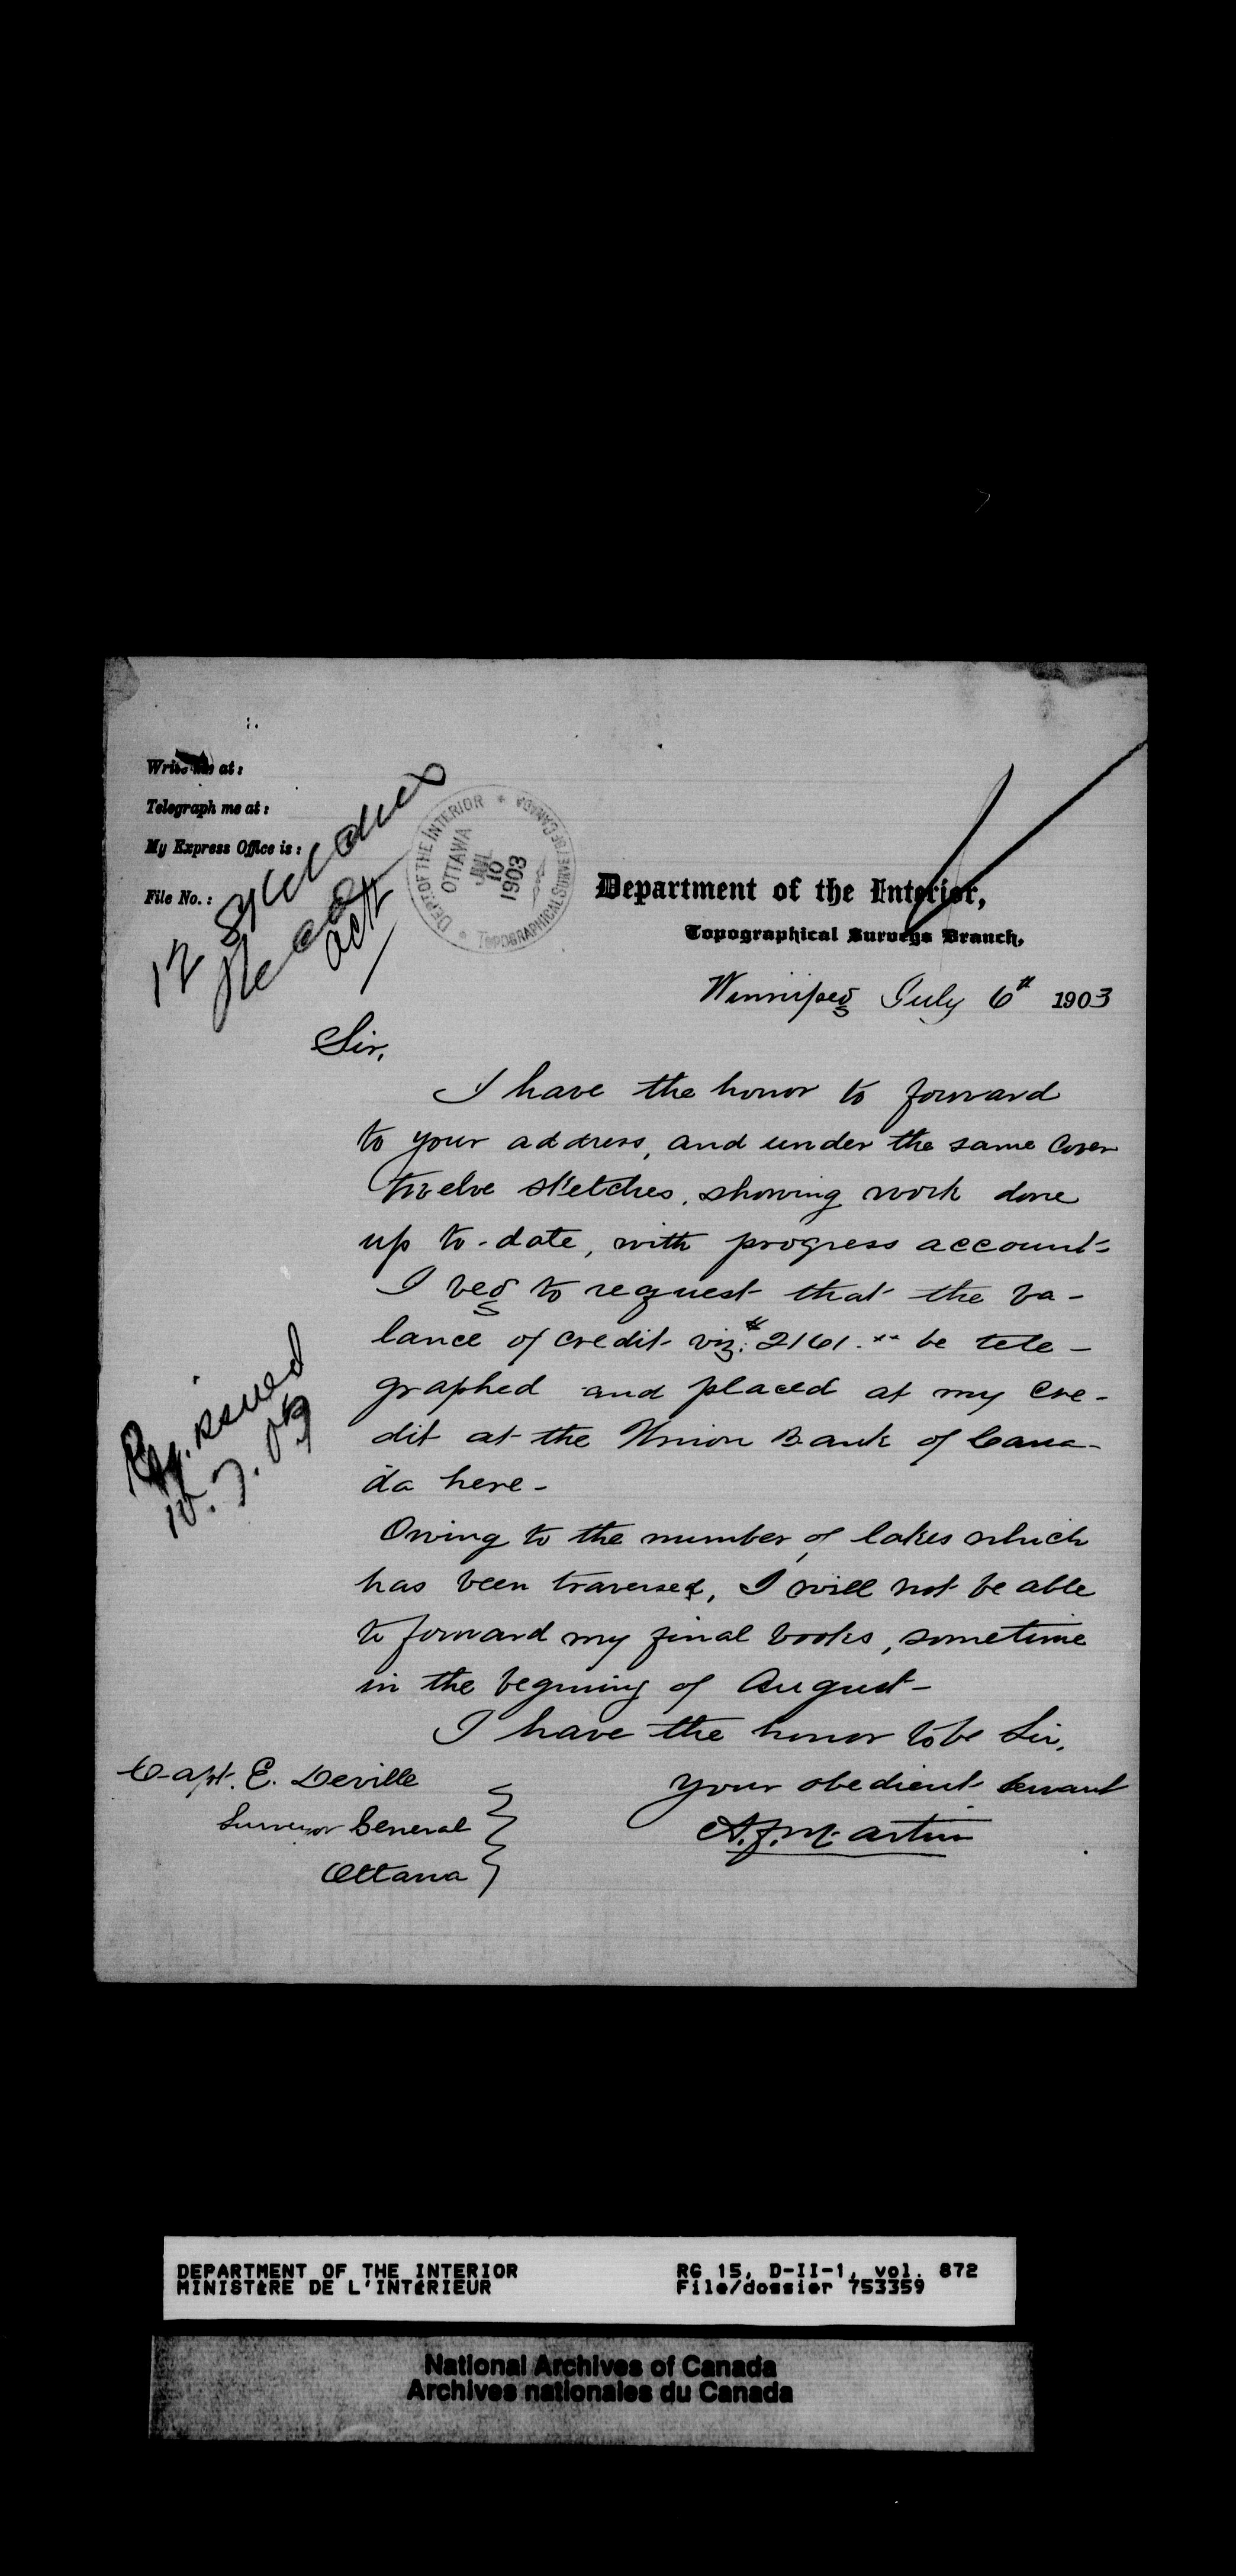 Write me at:
Telegraph me at:
My Express Office is:
File No.:
12 sketches
acct
DEPT. OF THE INTERIOR * TOPOGRAPHICAL SURVEYS OF CANADA *
OTTAWA
JUL
10
1903
Department of the Interior,
Topographical Surveys Branch,
Winnipeg July 6th 1903
Sir,
I have the honor to forward
to your address, and under the same cover
twelve sketches, showing work done
up to-date, with progress account-
I beg to request that the ba-
lance of credit viz: $2161.xx be tele-
graphed and placed at my cre-
dit at the Union Bank of Cana-
da here-
Req. issued
10.7.03
Owing to the number of lakes which
has been traversed, I will not be able
to forward my final books, sometime
in the begining of August-
I have the honor to be Sir,
your obedient servant
A.F. Martin
Capt. E. Deville
Surveyor General
Ottawa
DEPARTMENT OF THE INTERIOR
MINISTÈRE DE L'INTÉRIEUR
RG 15, D-II-1, vol. 872
File/dossier 753359
National Archives of Canada
Archives nationales du Canada